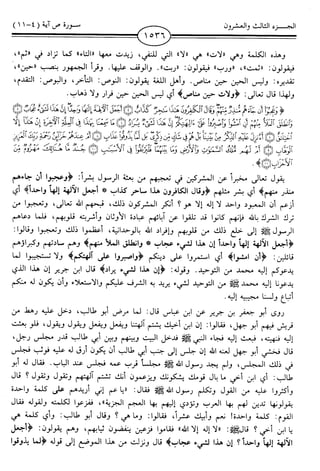 الجزء الثالث والعشرون
١٥٣٦
سورة ص آية (٤-١١)
وهذه الكلمة وهي «لات» هي «لا» التي للنفي، زيدت معها «التاء» كما تزاد في «ثم»،
فيقولون: «ثمت»، و«رب» فيقولون: «ربت». والوقف عليها. وقرأ الجمهور بنصب «حين»،
تقديره: وليس الحين حين مناص. وأهل اللغة يقولون: النوص: التأخر، والبوص: التقدم،
ولهذا قال تعالى: ﴿ولات حين مناص﴾ أي ليس الحين حين فرار ولا ذهاب.
يقول تعالى مخبراً عن المشركين في تعجبهم من بعثة الرسول بشراً: ﴿وعجبوا أن جاءهم
منذر منهم﴾ أي بشر مثلهم ﴿وقال الكافرون هذا ساحر كذاب * أجعل الآلهة إلهاً واحداً﴾ أي
أزعم أن المعبود واحد لا إله إلا هو؟ أنكر المشركون ذلك، قبحهم الله تعالى، وتعجبوا من
ترك الشرك بالله فإنهم كانوا قد تلقوا عن آبائهم عبادة الأوثان وأشربته قلوبهم، فلما دعاهم
الرسول ﷺ إلى خلع ذلك من قلوبهم وإفراد الله بالوحدانية، أعظموا ذلك وتعجبوا وقالوا:
﴿أجعل الآلهة إلهاً واحداً؟ إن هذا لشيء عجاب * وانطلق الملأ منهم﴾ وهم سادتهم وكبراؤهم
قائلين: ﴿أن امشوا﴾ أي استمروا على دينكم ﴿واصبروا على آلهتكم﴾ ولا تستجيبوا لما
يدعوكم إليه محمد من التوحيد. وقوله: ﴿إن هذا لشيء يراد﴾ قال ابن جرير إن هذا الذي
يدعونا إليه محمد ﷺ من التوحيد لشيء يريد به الشرف عليكم والاستعلاء وأن يكون له منكم
أتباع ولسنا مجيبيه إليه.
روى أبو جعفر بن جرير عن ابن عباس قال: لما مرض أبو طالب، دخل عليه رهط من
قريش فيهم أبو جهل، فقالوا: إن ابن أخيك يشتم آلهتنا ويفعل ويفعل ويقول ويقول، فلو بعثت
إليه فنهيته، فبعث إليه فجاء النبي ﷺ فدخل البيت وبينهم وبين أبي طالب قدر مجلس رجل،
قال فخشي أبو جهل لعنه الله إن جلس إلى جنب أبي طالب أن يكون أرق له عليه فوثب فجلس
في ذلك المجلس، ولم يجد رسول الله ﷺ مجلساً قرب عمه فجلس عند الباب. فقال له أبو
طالب: أي ابن أخي ما بال قومك يشكونك ويزعمون أنك تشتم آلهتهم وتقول وتقول؟ قال
وأكثروا عليه من القول وتكلم رسول الله ﷺ فقال: «يا عم إني أريدهم على كلمة واحدة
يقولونها تدين لهم بها العرب وتؤدي إليهم بها العجم الجزية»، ففزعوا لكلمته ولقوله فقال
القوم: كلمة واحدة! نعم وأبيك عشراً، فقالوا: وما هي؟ وقال أبو طالب: وأي كلمة هي
يا ابن أخي ؟ قال ﷺ: «لا إله إلا الله» فقاموا فزعين ينفضون ثيابهم، وهم يقولون: ﴿أجعل
الآلهة إلهاً واحداً؟ إن هذا لشيء عجاب﴾ قال ونزلت من هذا الموضع إلى قوله ﴿لما يذوقوا